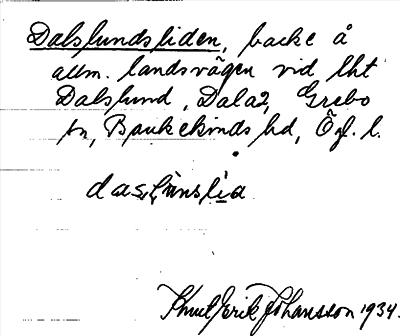 Dalslundsliden, backe å
allm. landsvägen vid lht
Dalslund, Dala2, Grebo
sn, Bankekinds hd, Ögl. l.
daslünslia
Knut Erik Johansson 1934.